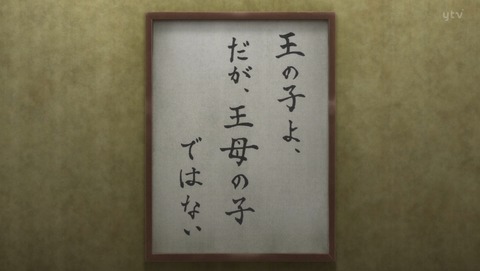 王の子よ、
だが、王母の子
ではない
ytv